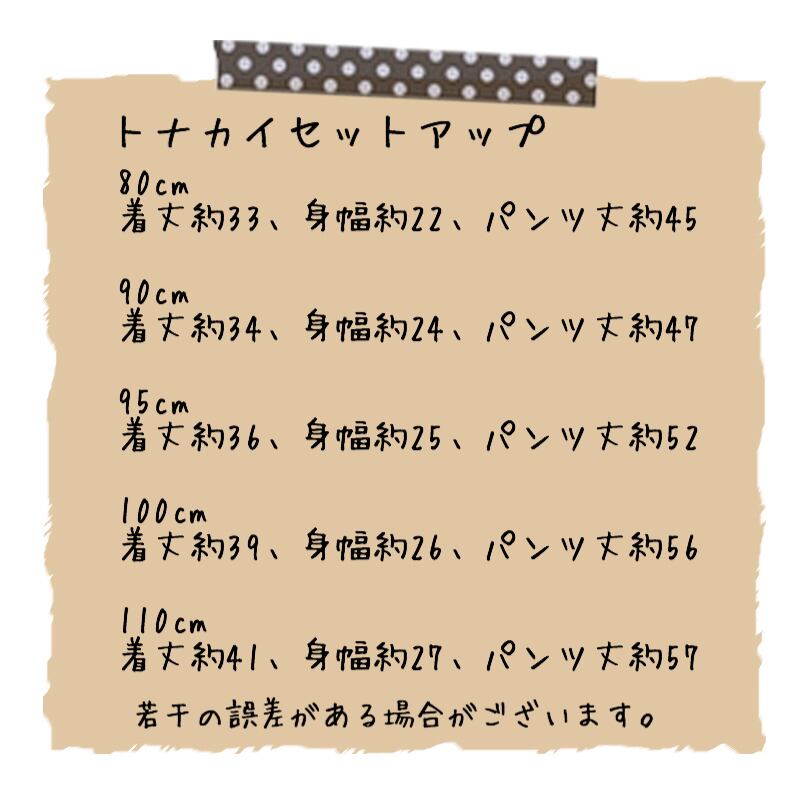 トナカイセットアップ
80cm
着丈約33、身幅約22、パンツ丈約45
90cm
着丈約34、身幅約24、パンツ丈約47
95cm
着丈約36、身幅約25、パンツ丈約52
100cm
着丈約39、身幅約26、パンツ丈約56
110cm
着丈約41、身幅約27、パンツ丈約57
若干の誤差がある場合がございます。